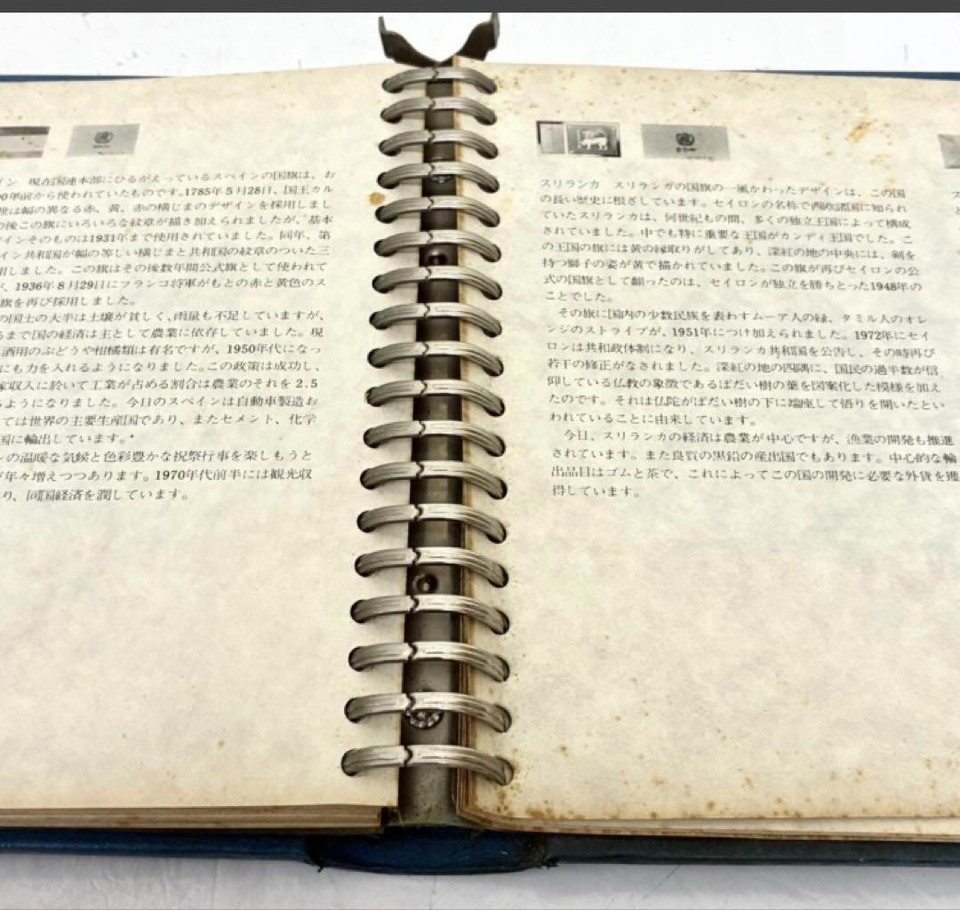 イン 現在国連本部にひるがえっているスペインの国旗は、お
0年前から使われていたものです。1785年5月28日、国王カル
世は幅の異なる赤、黄、赤の横じまのデザインを採用しまし
の後この旗にいろいろな紋章が描き加えられましたが、基本
インそのものは1931年まで使用されていました。同年、第
イン共和国が幅の等しい横じまと共和国の紋章のついた三
用しました。この旗はその後数年間公式旗として使われて
、1936年8月29日にフランコ将軍がもとの赤と黄色のス
旗を再び採用しました。
の国土の大半は土壌が貧しく、雨量も不足していますが、
るまで国の経済は主として農業に依存していました。現
酒用のぶどうや柑橘類は有名ですが、1950年代になっ
にも力を入れるようになりました。この政策は成功し、
家収入に於いて工業が占める割合は農業のそれを2.5
るようになりました。今日のスペインは自動車製造お
ては世界の主要生産国であり、またセメント、化学
国に輸出しています。
ンの温暖な気候と色彩豊かな祝祭行事を楽しもうと
年々増えつつあります。1970年代前半には観光収
り、同国経済を潤しています。
スリランカ スリランカの国旗の一風かわったデザインは、この国
の長い歴史に根ざしています。セイロンの名称で西欧諸国に知られ
ていたスリランカは、何世紀もの間、多くの独立王国によって構成
されていました。中でも特に重要な王国がカンディ王国でした。こ
の王国の旗には黄の縁取りがしてあり、深紅の地の中央には、剣を
持つ獅子の姿が黄で描かれていました。この旗が再びセイロンの公
式の国旗として翻ったのは、セイロンが独立を勝ちとった1948年の
ことでした。
その旗に国内の少数民族を表わすムーア人の緑、タミル人のオレ
ンジのストライプが、1951年につけ加えられました。1972年にセイ
ロンは共和政体制になり、スリランカ共和国を公告し、その時再び
若干の修正がなされました。深紅の地の四隅に、国民の過半数が信
仰している仏教の象徴であるぼだい樹の葉を図案化した模様を加え
たのです。それは仏陀がぼだい樹の下に端座して悟りを開いたとい
われていることに由来しています。
今日、スリランカの経済は農業が中心ですが、漁業の開発も推進
されています。また良質の黒鉛の産出国でもあります。中心的な輸
出品目はゴムと茶で、これによってこの国の開発に必要な外貨を獲
得しています。